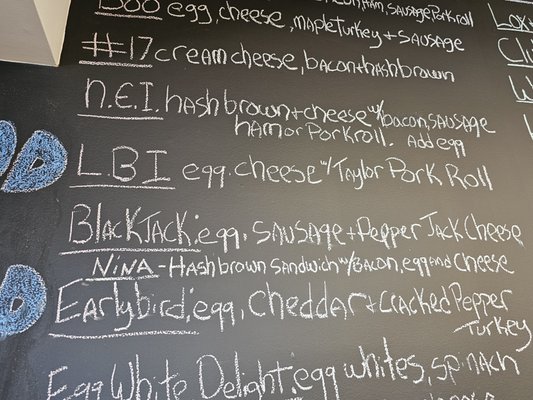 egg, cheese, mapleTurkey + SAUSAGE
#17 cream cheese, bacon + hashbrown
N.E.I. hashbrown + cheese w/ bacon, SAUSAGE
HAM or Porkroll. Add egg
L.B.I egg. cheese w/ Taylor Pork Roll
BlackJack: egg, SAUSAGE + Pepper Jack Cheese
NiNA - Hashbrown Sandwich w/ Bacon, egg and Cheese
Earlybird: egg, Cheddar + Cracked Pepper
Turkey
Egg White Delight: egg whites, spinach